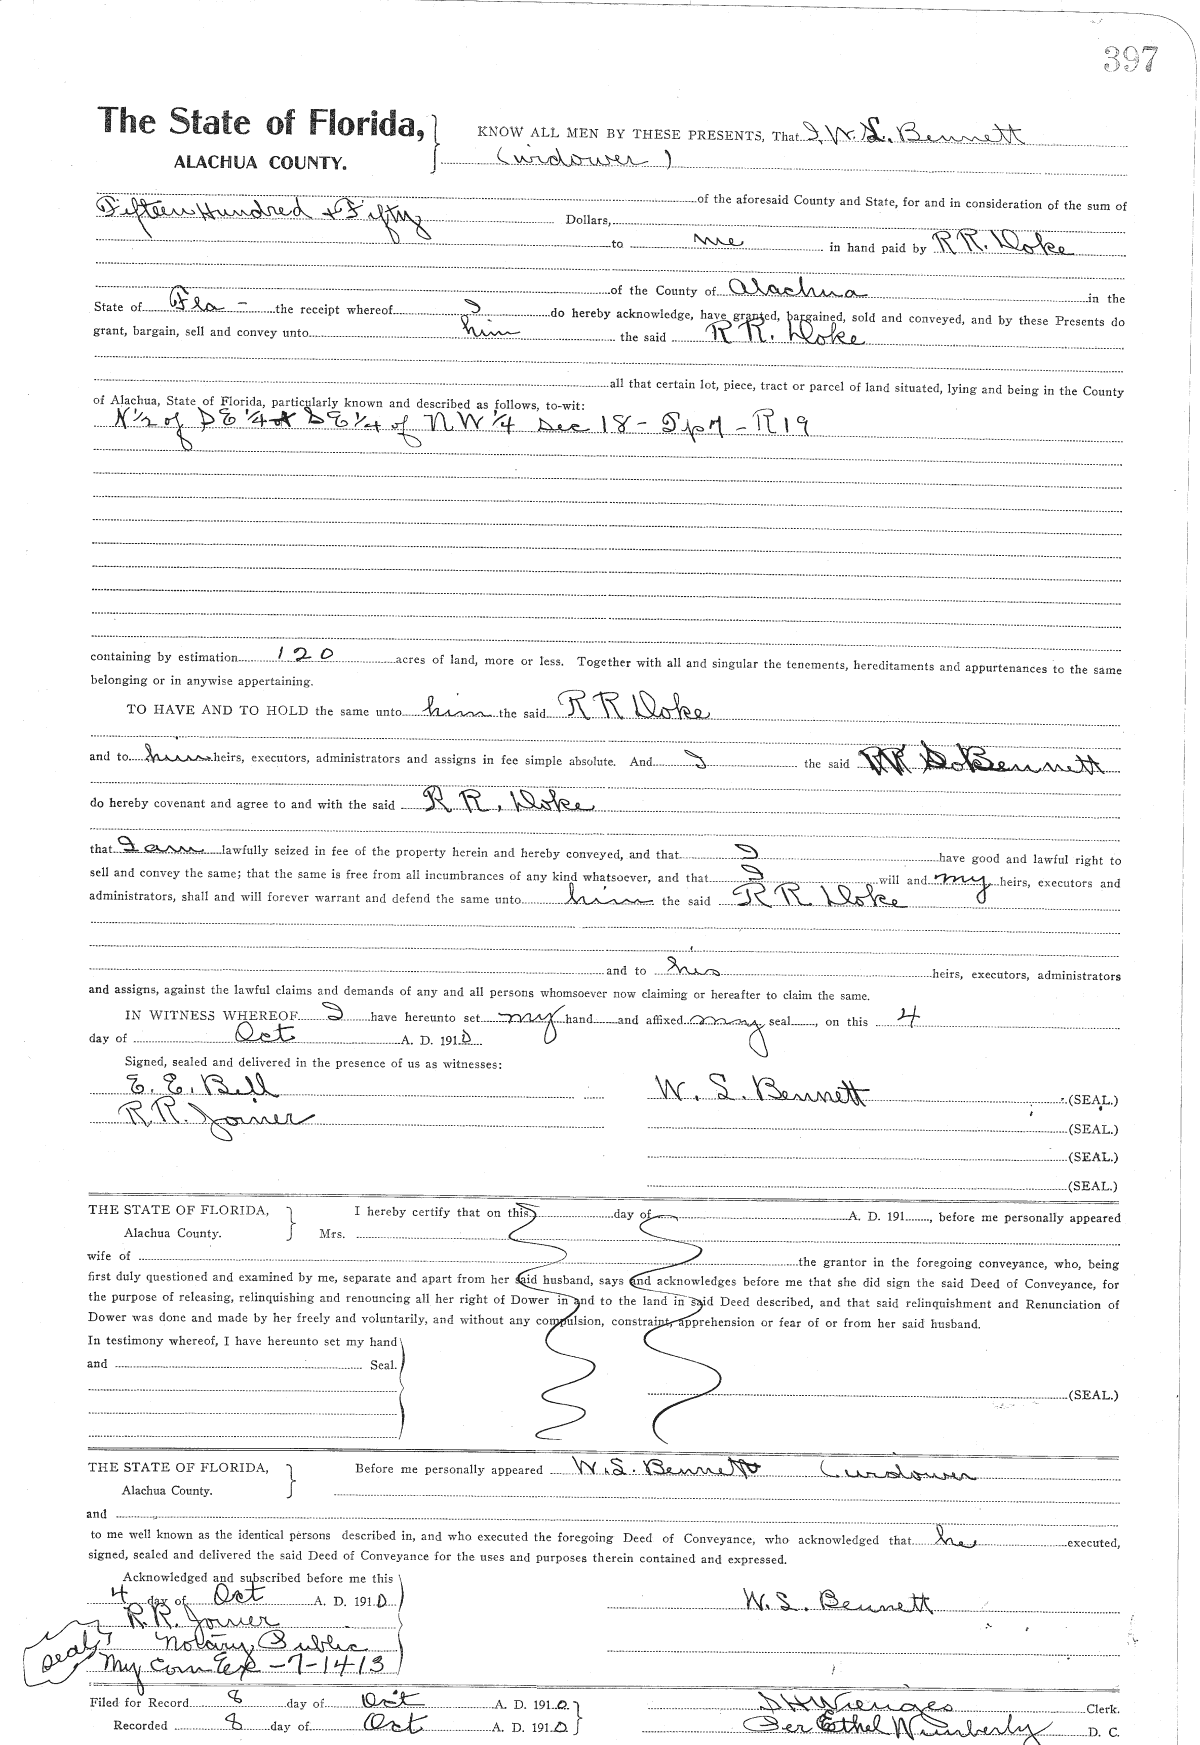 397
The State of Florida,
ALACHUA COUNTY.
KNOW ALL MEN BY THESE PRESENTS, That I, W. S. Bennett
(widower)
of the aforesaid County and State, for and in consideration of the sum of
Fifteen Hundred & Fifty Dollars,
to me in hand paid by R R. Doke
of the County of Alachua in the
State of Fla - the receipt whereof I do hereby acknowledge, have granted, bargained, sold and conveyed, and by these Presents do
grant, bargain, sell and convey unto him the said R R. Doke
all that certain lot, piece, tract or parcel of land situated, lying and being in the County
of Alachua, State of Florida, particularly known and described as follows, to-wit:
N 1/2 of SE 1/4 & SE 1/4 of NW 1/4 Sec 18 - Tp 7 - R 19
containing by estimation 120 acres of land, more or less. Together with all and singular the tenements, hereditaments and appurtenances to the same
belonging or in anywise appertaining.
TO HAVE AND TO HOLD the same unto him the said R R Doke
and to his heirs, executors, administrators and assigns in fee simple absolute. And I the said Bennett
do hereby covenant and agree to and with the said R R. Doke
that I am lawfully seized in fee of the property herein and hereby conveyed, and that I have good and lawful right to
sell and convey the same; that the same is free from all incumbrances of any kind whatsoever, and that I will and my heirs, executors and
administrators, shall and will forever warrant and defend the same unto him the said R R Doke
and to his heirs, executors, administrators
and assigns, against the lawful claims and demands of any and all persons whomsoever now claiming or hereafter to claim the same.
IN WITNESS WHEREOF I have hereunto set my hand and affixed my seal, on this 4
day of Oct A. D. 1910
Signed, sealed and delivered in the presence of us as witnesses:
E. E. Bell
W. S. Bennett (SEAL.)
R. R. Joiner
(SEAL.)
(SEAL.)
(SEAL.)
THE STATE OF FLORIDA,
Alachua County.
I hereby certify that on this day of A. D. 191, before me personally appeared
Mrs.
wife of the grantor in the foregoing conveyance, who, being
first duly questioned and examined by me, separate and apart from her said husband, says and acknowledges before me that she did sign the said Deed of Conveyance, for
the purpose of releasing, relinquishing and renouncing all her right of Dower in and to the land in said Deed described, and that said relinquishment and Renunciation of
Dower was done and made by her freely and voluntarily, and without any compulsion, constraint, apprehension or fear of or from her said husband.
In testimony whereof, I have hereunto set my hand
and Seal.
(SEAL.)
THE STATE OF FLORIDA,
Alachua County.
Before me personally appeared W. S. Bennett (widower
and
to me well known as the identical persons described in, and who executed the foregoing Deed of Conveyance, who acknowledged that he executed,
signed, sealed and delivered the said Deed of Conveyance for the uses and purposes therein contained and expressed.
Acknowledged and subscribed before me this
4 day of Oct A. D. 1910
W. S. Bennett
R. R. Joiner
Notary Public
seal
My Com Exp - 7-14 13
Filed for Record 8 day of Oct A. D. 1910
Recorded 8 day of Oct A. D. 1910
S H Wienges Clerk.
Per Ethel Wimberly D. C.